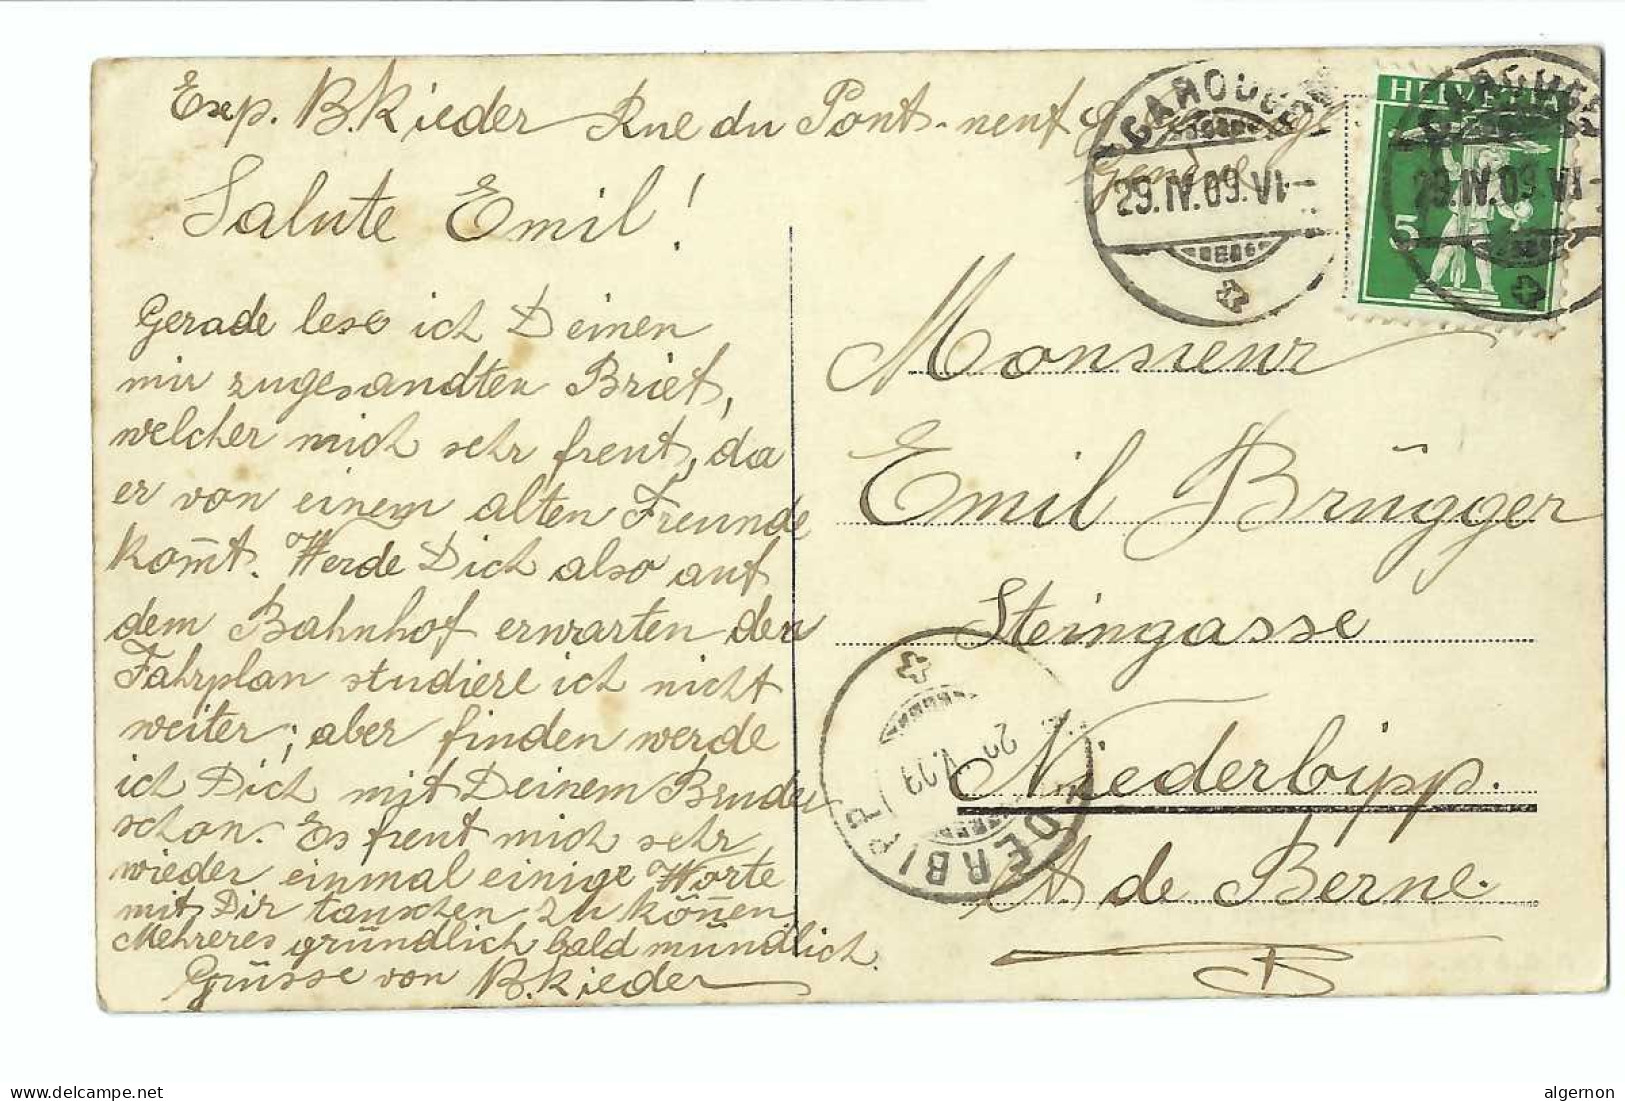 Exp. B. Rieder Rue du Pont-neuf
Genève
CAROUGE
29.IV.09.VI-
HELVETIA
5
CAROUGE
29.IV.09.VI-
Salute Emil!
Gerade lese ich Deinen
mir zugesandten Brief,
welcher mich sehr freut, da
er von einem alten Freunde
kom̄t. Werde Dich also auf
dem Bahnhof erwarten den
Fahrplan studiere ich nicht
weiter; aber finden werde
ich Dich mit Deinem Bruder
schon. Es freut mich sehr
wieder einmal einige Worte
mit Dir tauschen zu kön̄en.
Mehreres gründlich bald mündlich.
Grüsse von B. Rieder
Monsieur
Emil Brügger
Steingasse
Niederbipp.
Ct. de Berne.
B
DERBIPP
delcampe.net
algernon